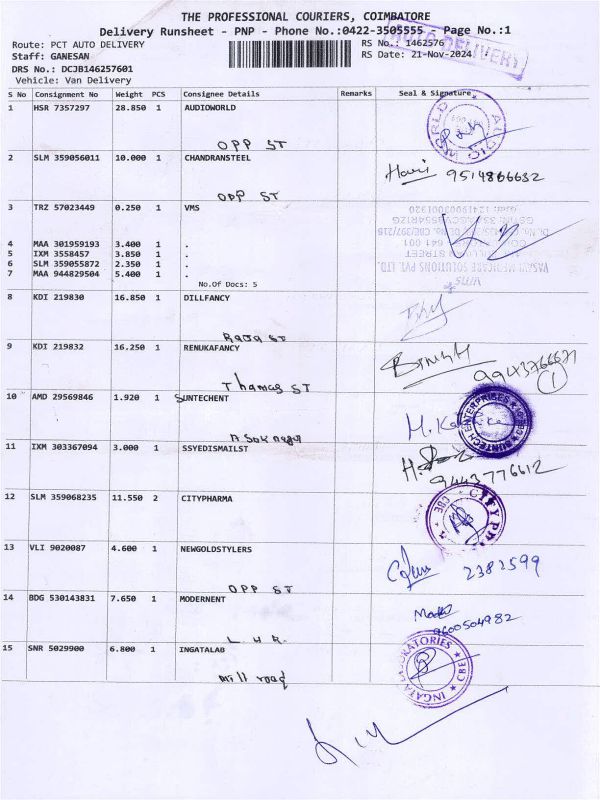 THE PROFESSIONAL COURIERS, COIMBATORE
Delivery Runsheet - PNP - Phone No.:0422-3505555 Page No.:1
Route: PCT AUTO DELIVERY RS No.: 1462576
Staff: GANESAN RS Date: 21-Nov-2024
AUTO DELIVERY
DRS No.: DCJB146257601
Vehicle: Van Delivery
S No Consignment No Weight PCS Consignee Details Remarks Seal & Signature
1 HSR 7357297 28.850 1 AUDIOWORLD
AUDIO WORLD
OPP ST
2 SLM 359056011 10.000 1 CHANDRANSTEEL
Hari 9514866632
OPP ST
3 TRZ 57023449 0.250 1 VMS
4 MAA 301959193 3.400 1 .
5 IXM 3558457 3.850 1 .
6 SLM 359055872 2.350 1 .
7 MAA 944829504 5.400 1 .
VASAN MEDICARE SOLUTIONS PVT. LTD.
No.Of Docs: 5
8 KDI 219830 16.850 1 DILLFANCY
Raja ST
9 KDI 219832 16.250 1 RENUKAFANCY
9943766671
1
Thomas ST
10 AMD 29569846 1.920 1 SUNTECHENT
SUNTECH ENTERPRISES
A Sok nagar
11 IXM 303367094 3.000 1 SSYEDISMAILST
9443776612
12 SLM 359068235 11.550 2 CITYPHARMA
CITY PH
CBE
13 VLI 9020087 4.600 1 NEWGOLDSTYLERS
2382599
OPP ST
14 BDG 530143831 7.650 1 MODERNENT
9600504982
15 SNR 5029900 6.800 1 INGATALAB
INGATA LABORATORIES
CBE
Mill road